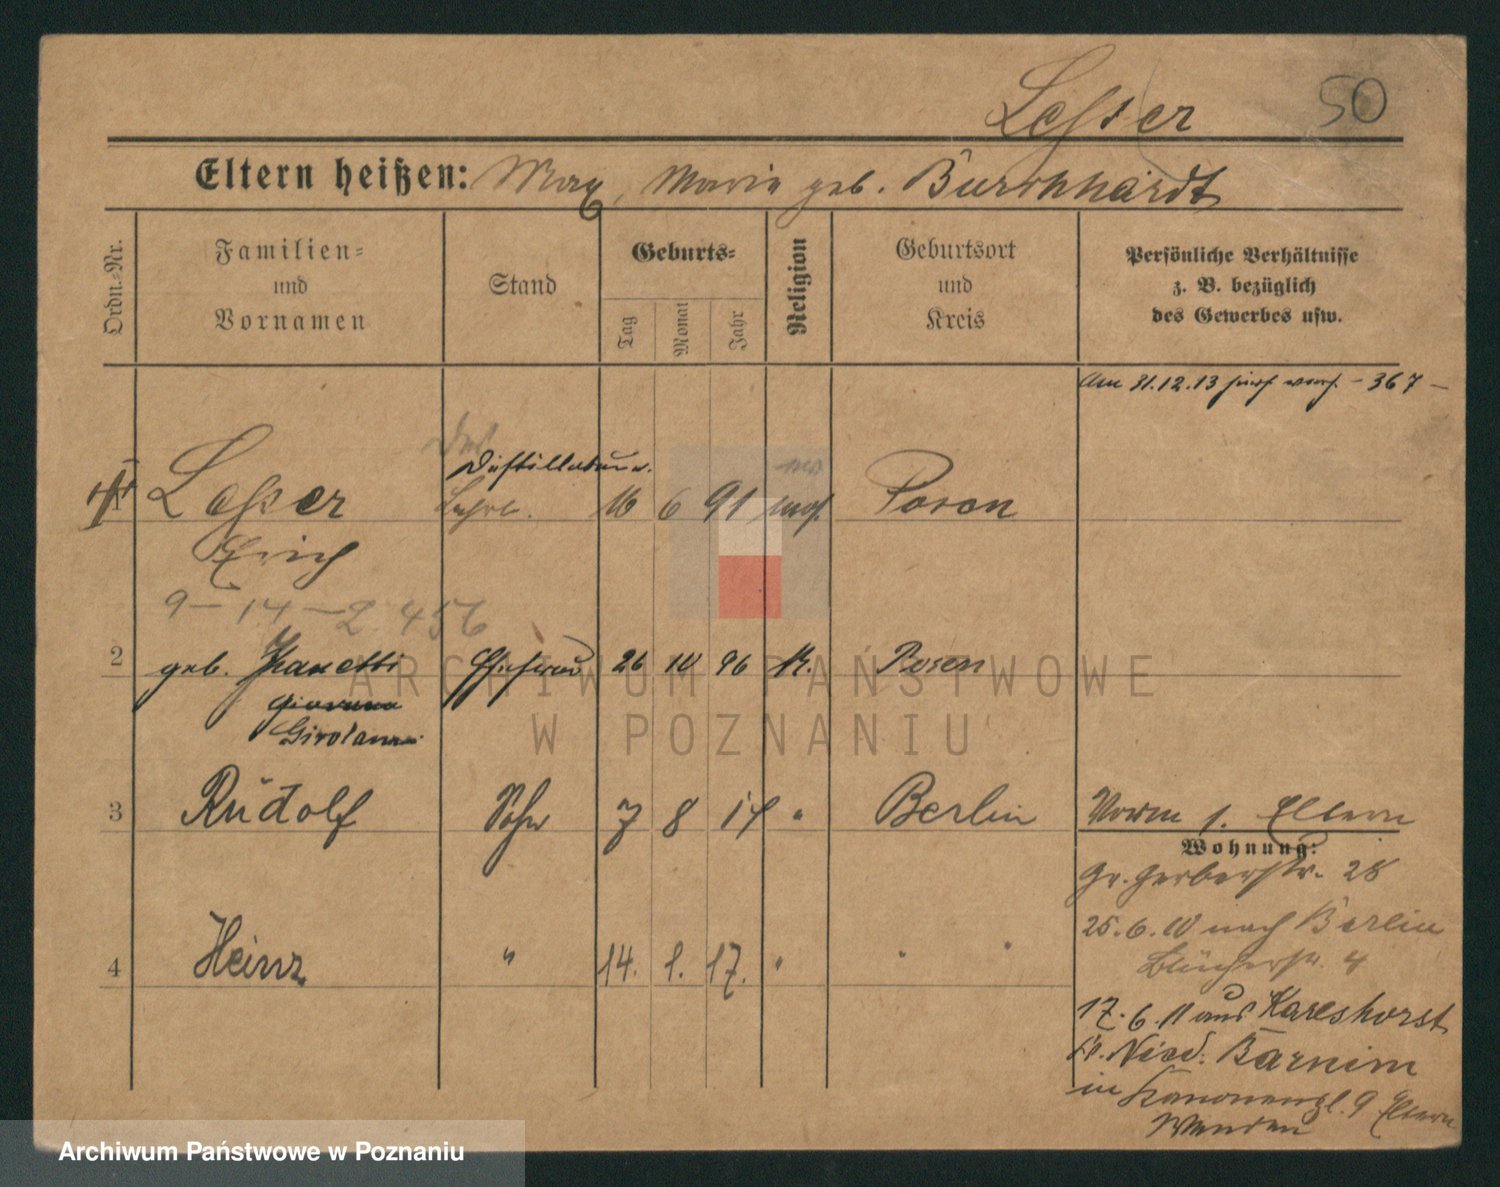 Leßer 50
Eltern heißen: Max, Marie geb. Burchhardt
Ordn.-Nr.
Familien-
und
Vornamen
Stand
Geburts-
Tag
Monat
Jahr
Religion
Geburtsort
und
Kreis
Persönliche Verhältnisse
z. B. bezüglich
des Gewerbes usw.
Am 31.12.13 - 367 -
Destillateur
1 Leßer Lehrl. 16 6 91 Posen
Erich
9-14-2 456
2 geb. Zanetti Ehefrau 26 10 96 K. Posen
Giovanna
Girolama
3 Rudolf Sohn 7 8 14 " Berlin
Vorm. s. Eltern
Wohnung:
Gr. Gerberstr. 28
25.6.10 nach Berlin
Blücherstr. 4
4 Heinz " 14. 1. 17. " " "
17.6.11 aus Kareshorst
Kr. Nied. Barnim
in Kanonenpl. 9 Eltern
ARCHIWUM PAŃSTWOWE
W POZNANIU
Archiwum Państwowe w Poznaniu